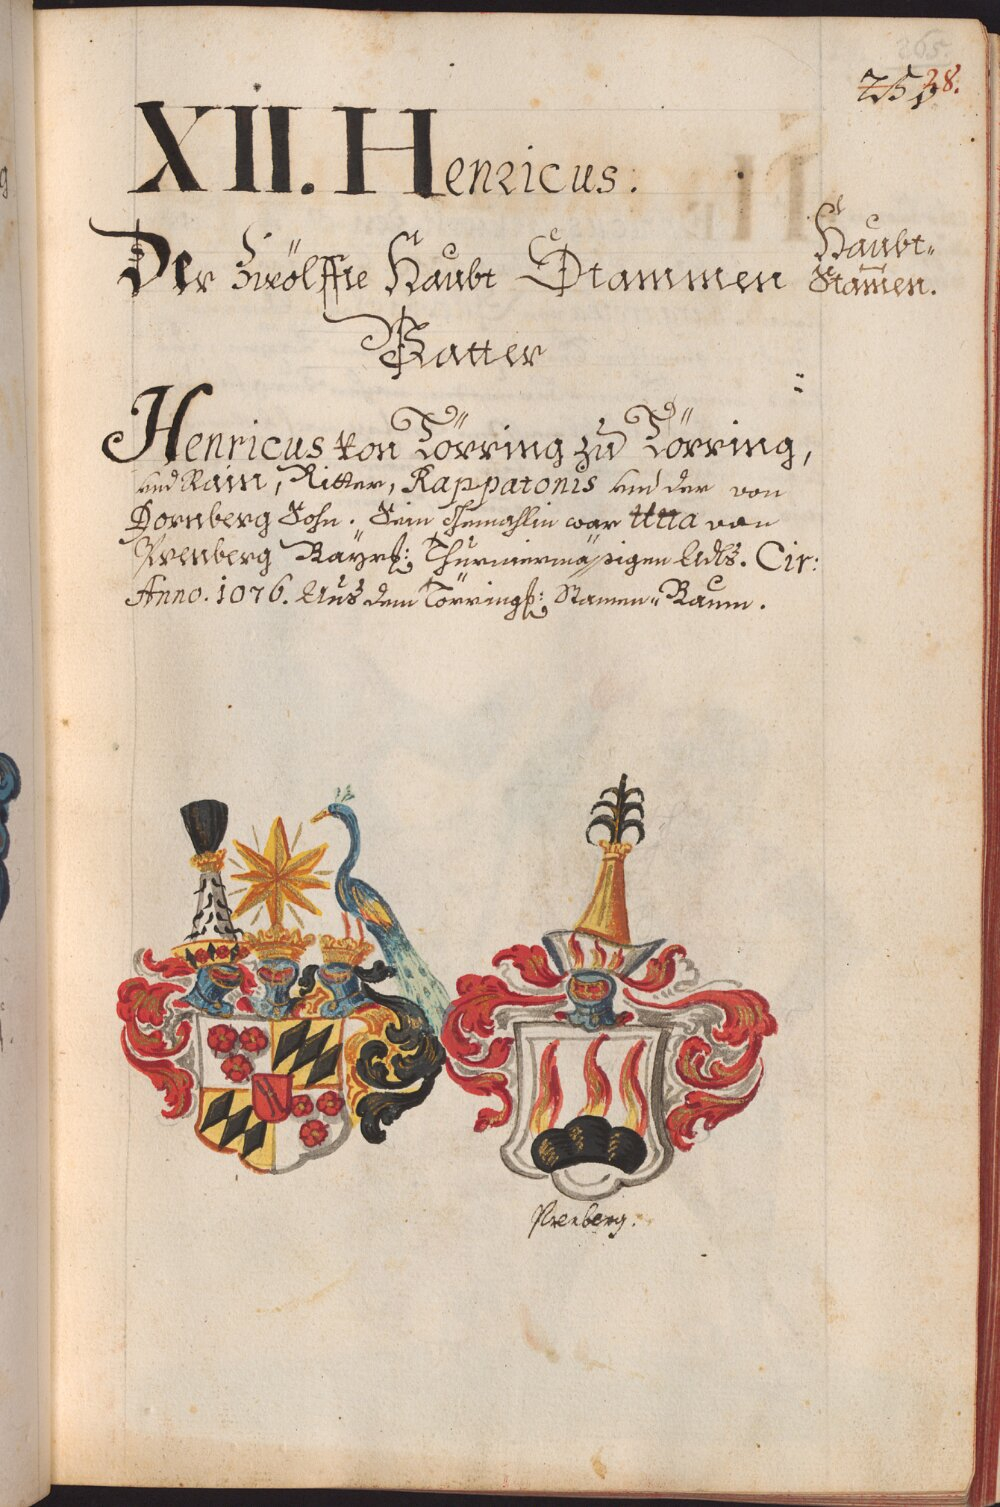 28.
XII. Henricus.
Der Zwölffte Haubt Stammen
Vatter
Haubt-
Stam̅en.
Henricus von Törring zu Törring,
und Rain, Ritter, Rappatonis und der von
Dornberg Sohn. Sein Ehemahlin war Utta von
Prenberg Bayrß: Thurniermässigen Adls. Cir:
Anno. 1076. Aus dem Törringß: Stamen-Baum.
Prenberg.